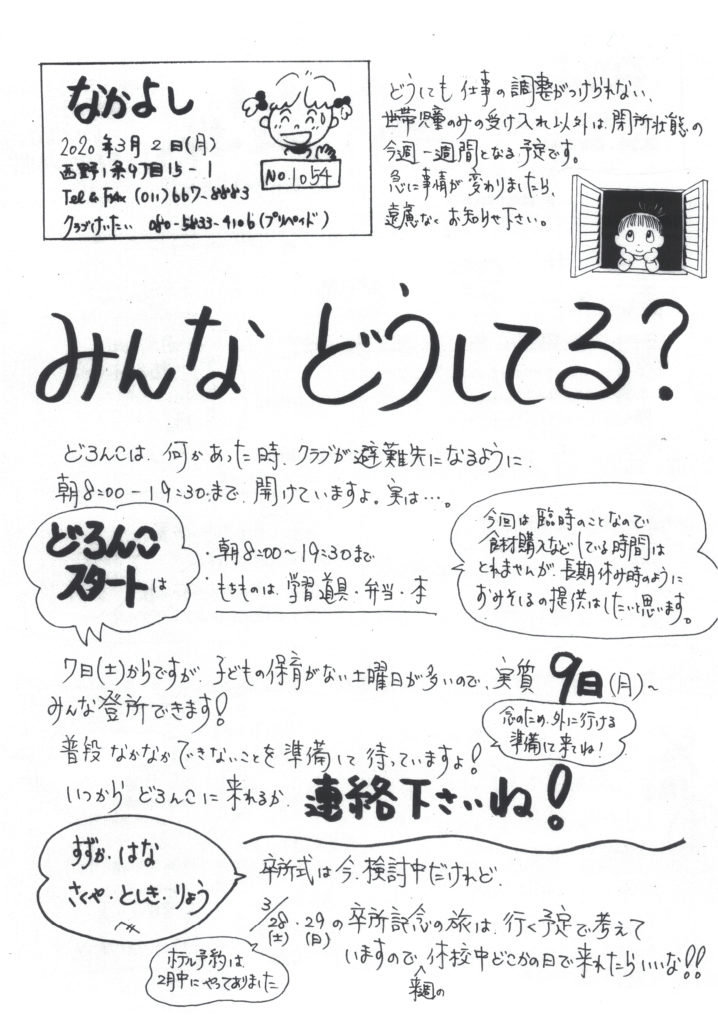 なかよし
2020年3月2日(月)
西野1条9丁目15-1
Tel & Fax (011)667-8883
クラブけいたい 080-5833-4106(プリペイド)
No.1054
どうしても仕事の調整がつけられない、
世帯児童のみの受け入れ以外は、閉所状態の
今週一週間となる予定です。
急に事情が変わりましたら、
遠慮なくお知らせ下さい。
みんな どうしてる?
どろんこは、何かあった時、クラブが避難先になるように、
朝8:00-19:30まで、開けていますよ。実は…。
どろんこ
スタートは
・朝8:00〜19:30まで
・もちものは、学習道具・弁当・本
今回は臨時のことなので
食材購入などしている時間は
とれませんが、長期休み時のように
おみそしるの提供はしたいと思います。
7日(土)からですが、子どもの保育がない土曜日が多いので、実質 9日(月)〜
みんな登所できます!
念のため、外に行ける
準備して来てね!
普段なかなかできないことを準備して待っていますよ!
いつからどろんこに来れるか、連絡下さいね!
すずか・はな
さくや・としき・りょう
へ
卒所式は今、検討中だけれど、
3/28(土)・29(日)の卒所記念の旅は、行く予定で考えて
いますので、来週の休校中どこかの日で来れたらいいな!!
ホテル予約は、
2月中にやってありました